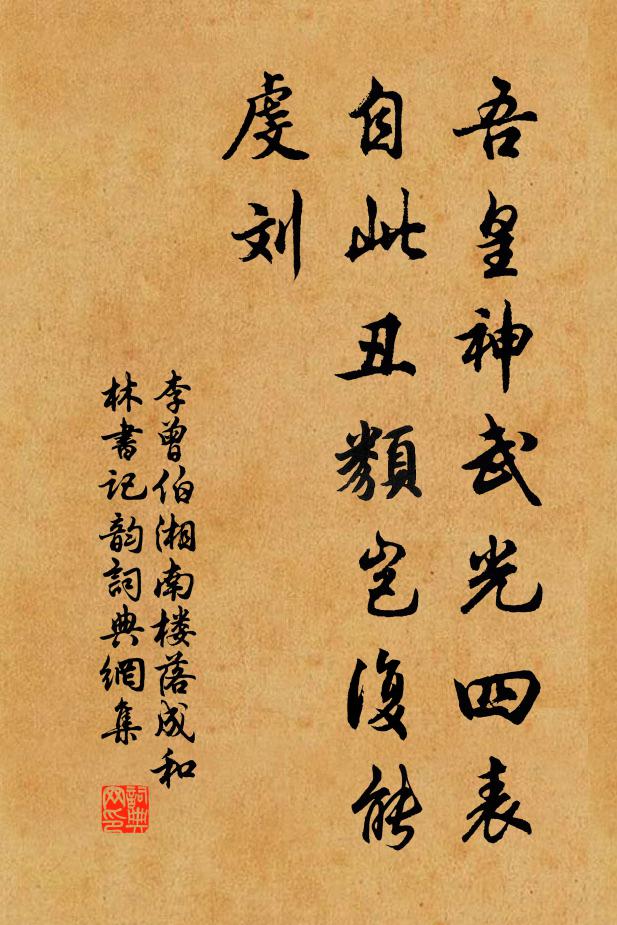 吾皇神武光四表
自此丑類岂復能
虔刘
李曾伯湘南楼落成和
林書记韵詞典網集
詞典
网印